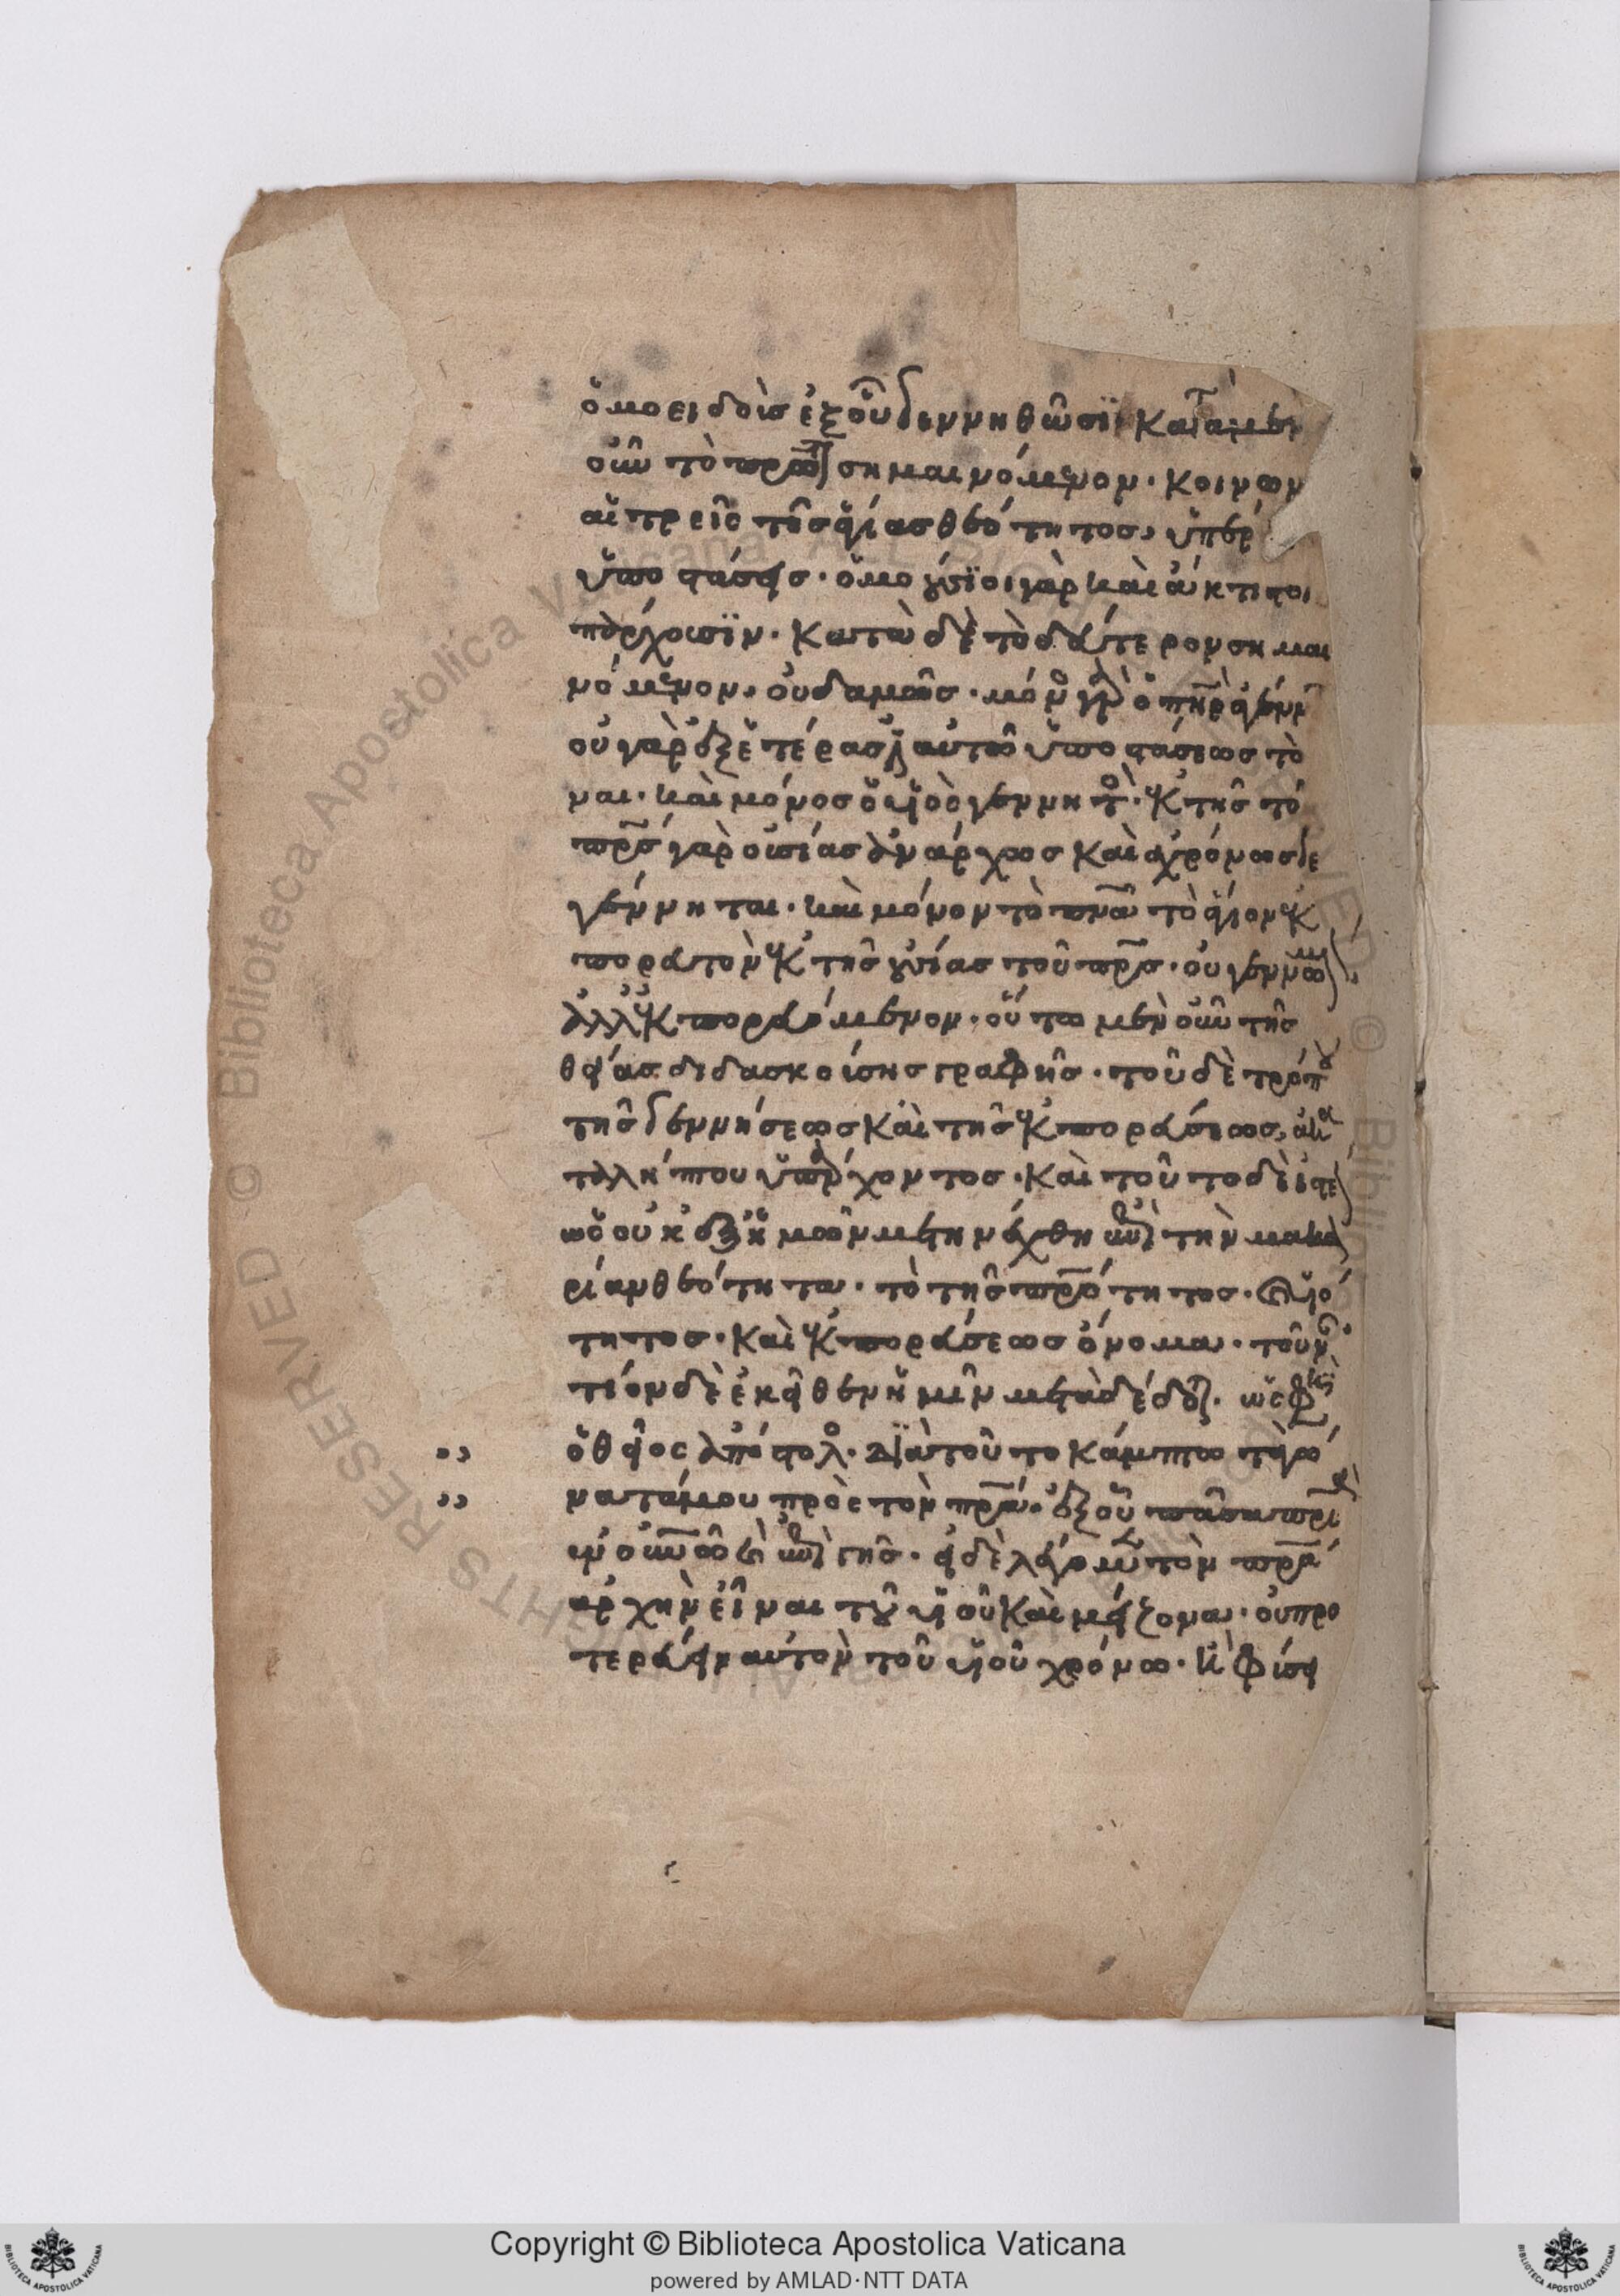 ὁμοειδοῦς ἐξ οὗ γεννηθῶσϊ κατὰ μὲν
οὖν τὸ πρῶτον σημαινόμενον. κοινων
αἱ τρεῖς τῆς ἁγίας θεότητος ὑπερ
ὑποστάσεις. ὁμοούσϊοι γὰρ καὶ ἄκτιστοι
πάρχουσϊν. κατὰ δὲ τὸ δεύτερον σημαι
νόμενον, οὐδαμῶς. μόνος γὰρ ὁ πηρ ἀγέννη
οὐ γὰρ ἐξ ἑτέρας ἐστὶν αὐτῶ ὑποστάσεως τὸ
ναι. καὶ μόνος ὁ υἱὸς γεννητός. ἐκ τῆς τοῦ
πρς γὰρ οὐσίας ἀνάρχως καὶ ἀχρόνως γε
γέννηται. καὶ μόνον τὸ πνα τὸ ἅγιον ἐκ
πορευτὸν ἐκ τῆς οὐσίας τοῦ πρς. οὐ γεννώμενον
ἀλλ' ἐκπορευόμενον. οὕτω μὲν οὖν τῆς
θείας διδασκούσης γραφῆς. τοῦ δὲ τρόπου
τῆς γεννήσεως καὶ τῆς ἐκπορεύσεως, ἀκα
ταλήπτου ὑπάρχοντος. καὶ τοῦτο δὲ ἰστέ
ὡς οὐκ ἐξ ἡμῶν μετηνέχθη ἐπὶ τὴν μακα
ρίαν θεότητα. τὸ τῆς πρότητος. καὶ υἱό
τητος. καὶ ἐκπορεύσεως ὄνομα. τοὐναν
τίον δὲ ἐκεῖθεν ἡμῖν μεταδέδοται. ὥς φησϊν
ὁ θεῖος ἀπόστολος. Διὰ τοῦτο κάμπτω τὰ γό
νατά μου πρὸς τὸν πρα. ἐξ οὗ πᾶσα πρι
ἐν οὐνῶ καὶ ἐπὶ γῆς. εἰ δὲ λέγομεν τὸν πρα
ἀρχὴν εἶναι τοῦ υἱοῦ καὶ μείζονα. οὐ προ
τερεύειν αὐτὸν τοῦ υἱοῦ χρόνω. ἢ φύσει
Copyright © Biblioteca Apostolica Vaticana
powered by AMLAD·NTT DATA